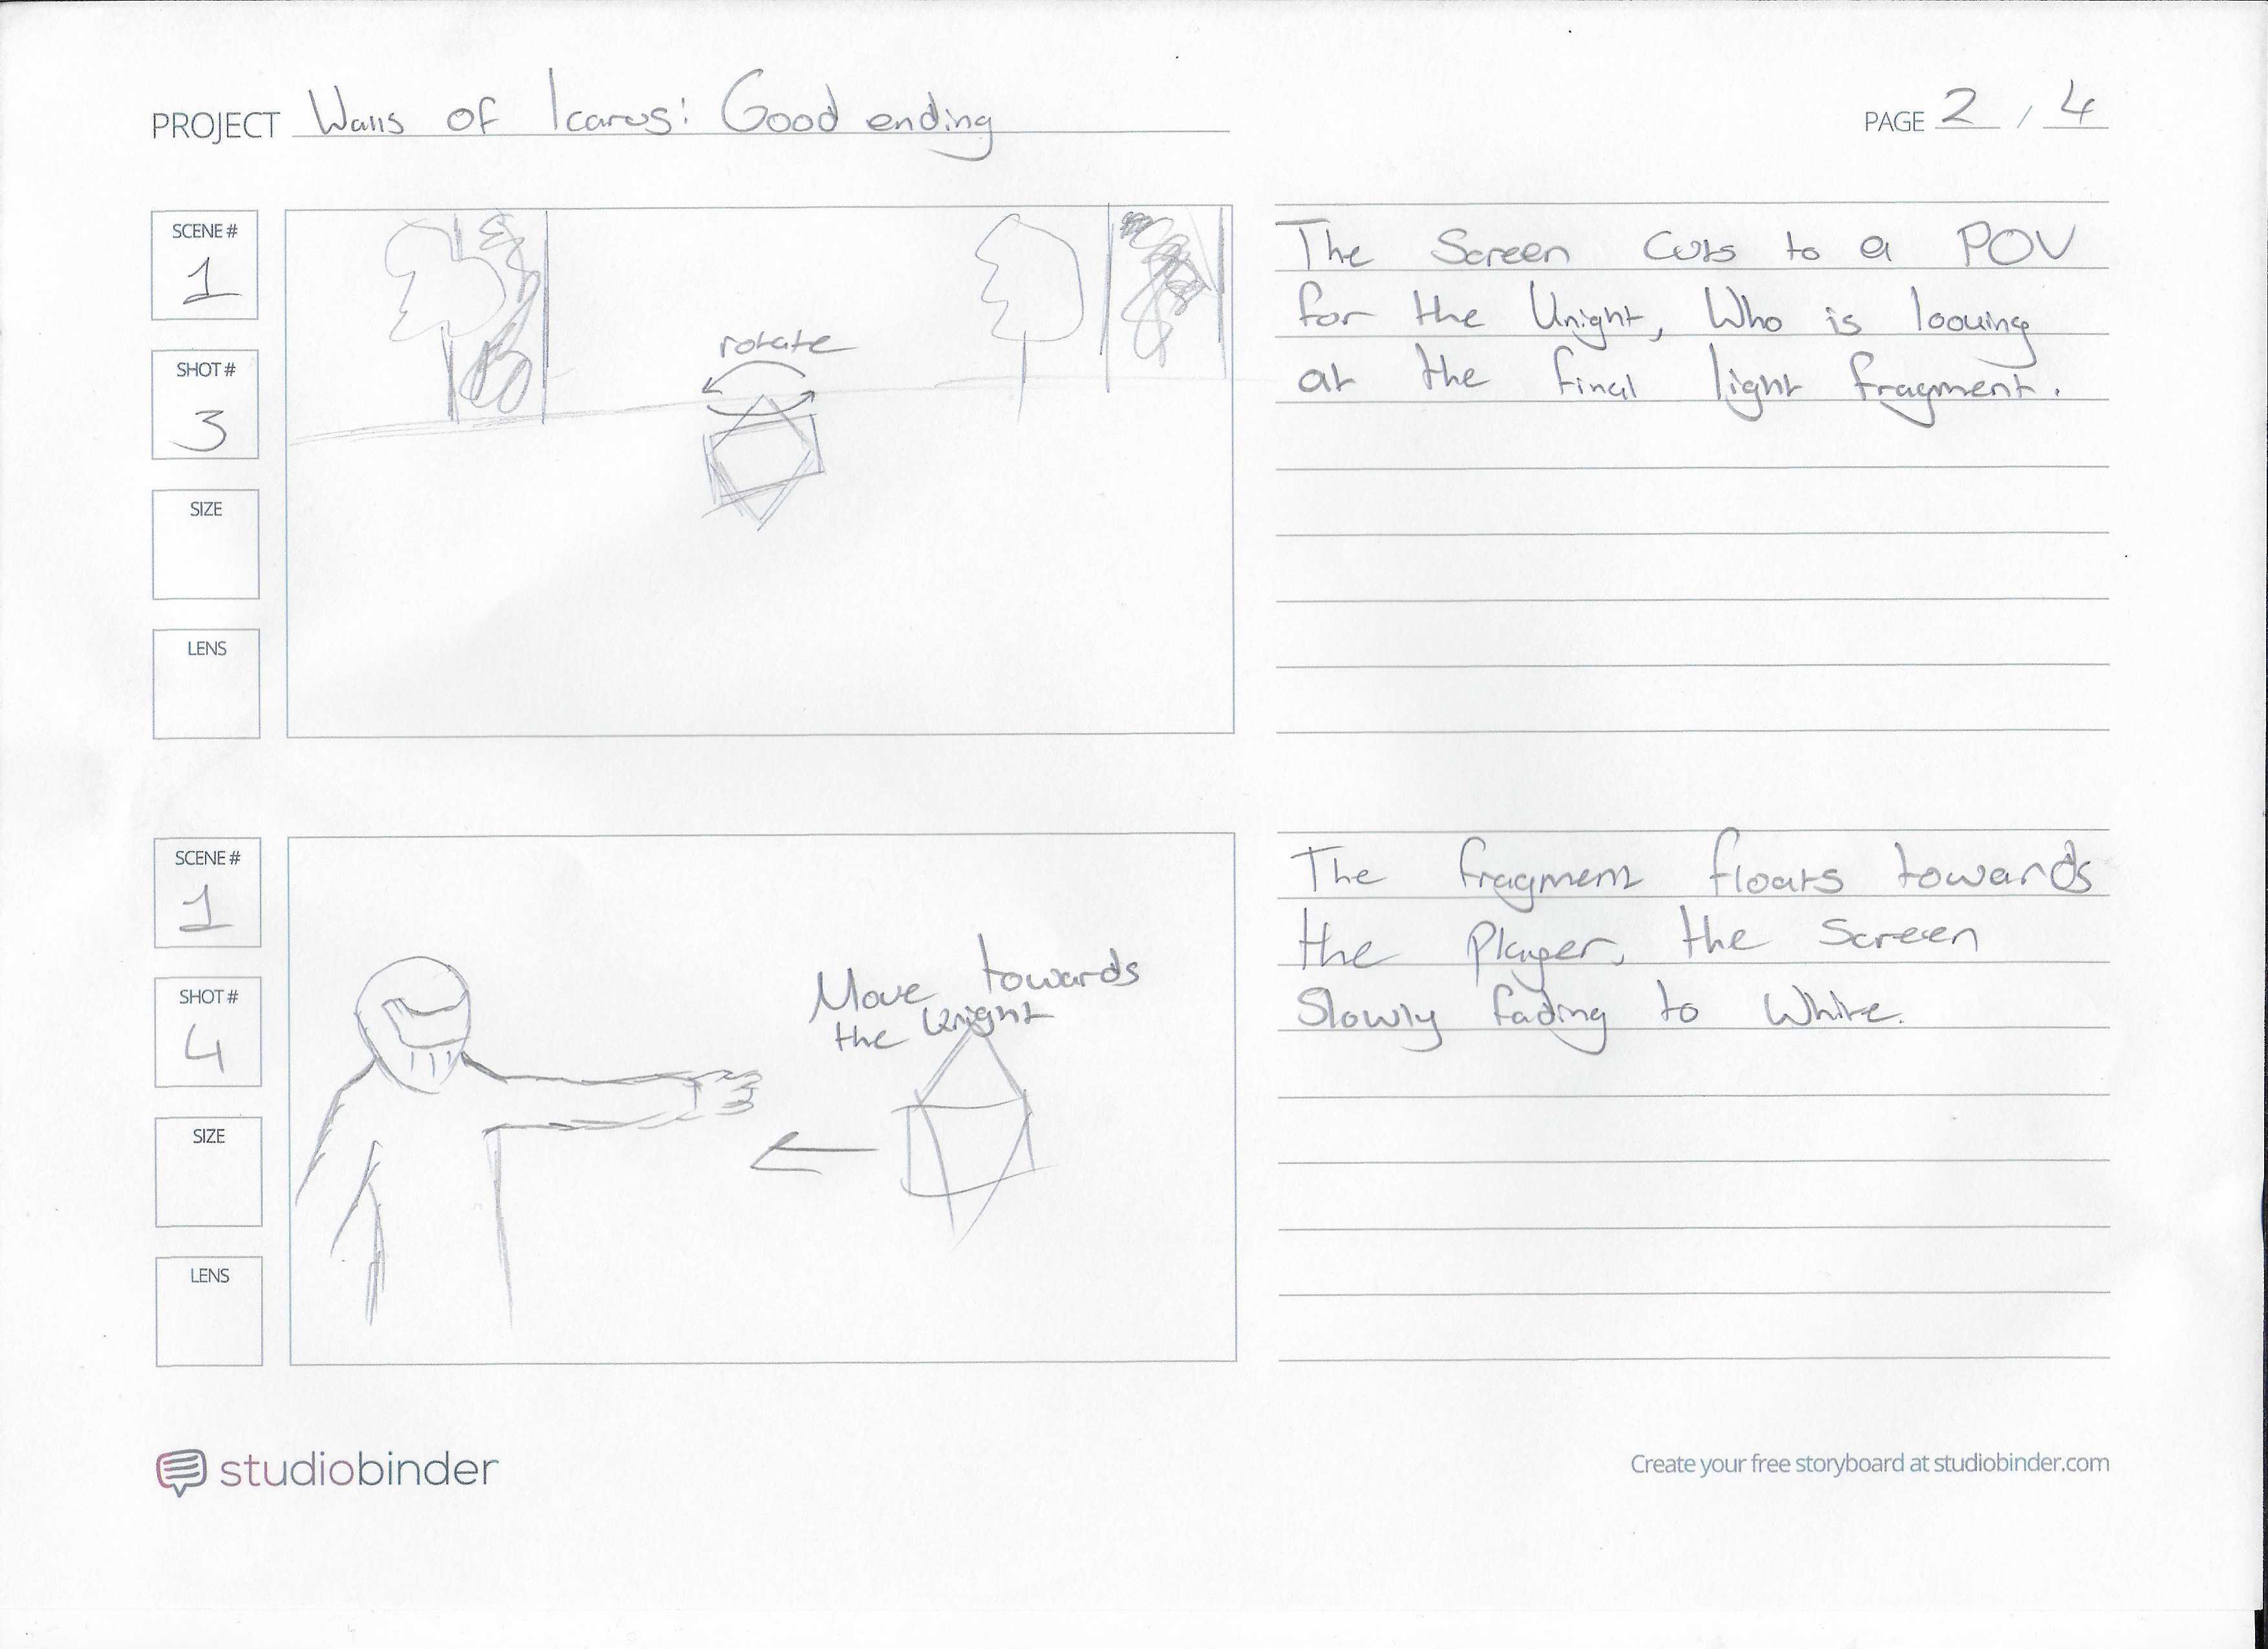 PROJECT Walls of Icarus: Good ending
PAGE 2 / 4
SCENE #
1
SHOT #
3
SIZE
LENS
rotate
The Screen Cuts to a POV
for the Knight, Who is looking
at the final light fragment.
SCENE #
1
SHOT #
4
SIZE
LENS
Move towards
the Knight
The fragment floats towards
the Player, the Screen
Slowly fading to White.
studiobinder
Create your free storyboard at studiobinder.com